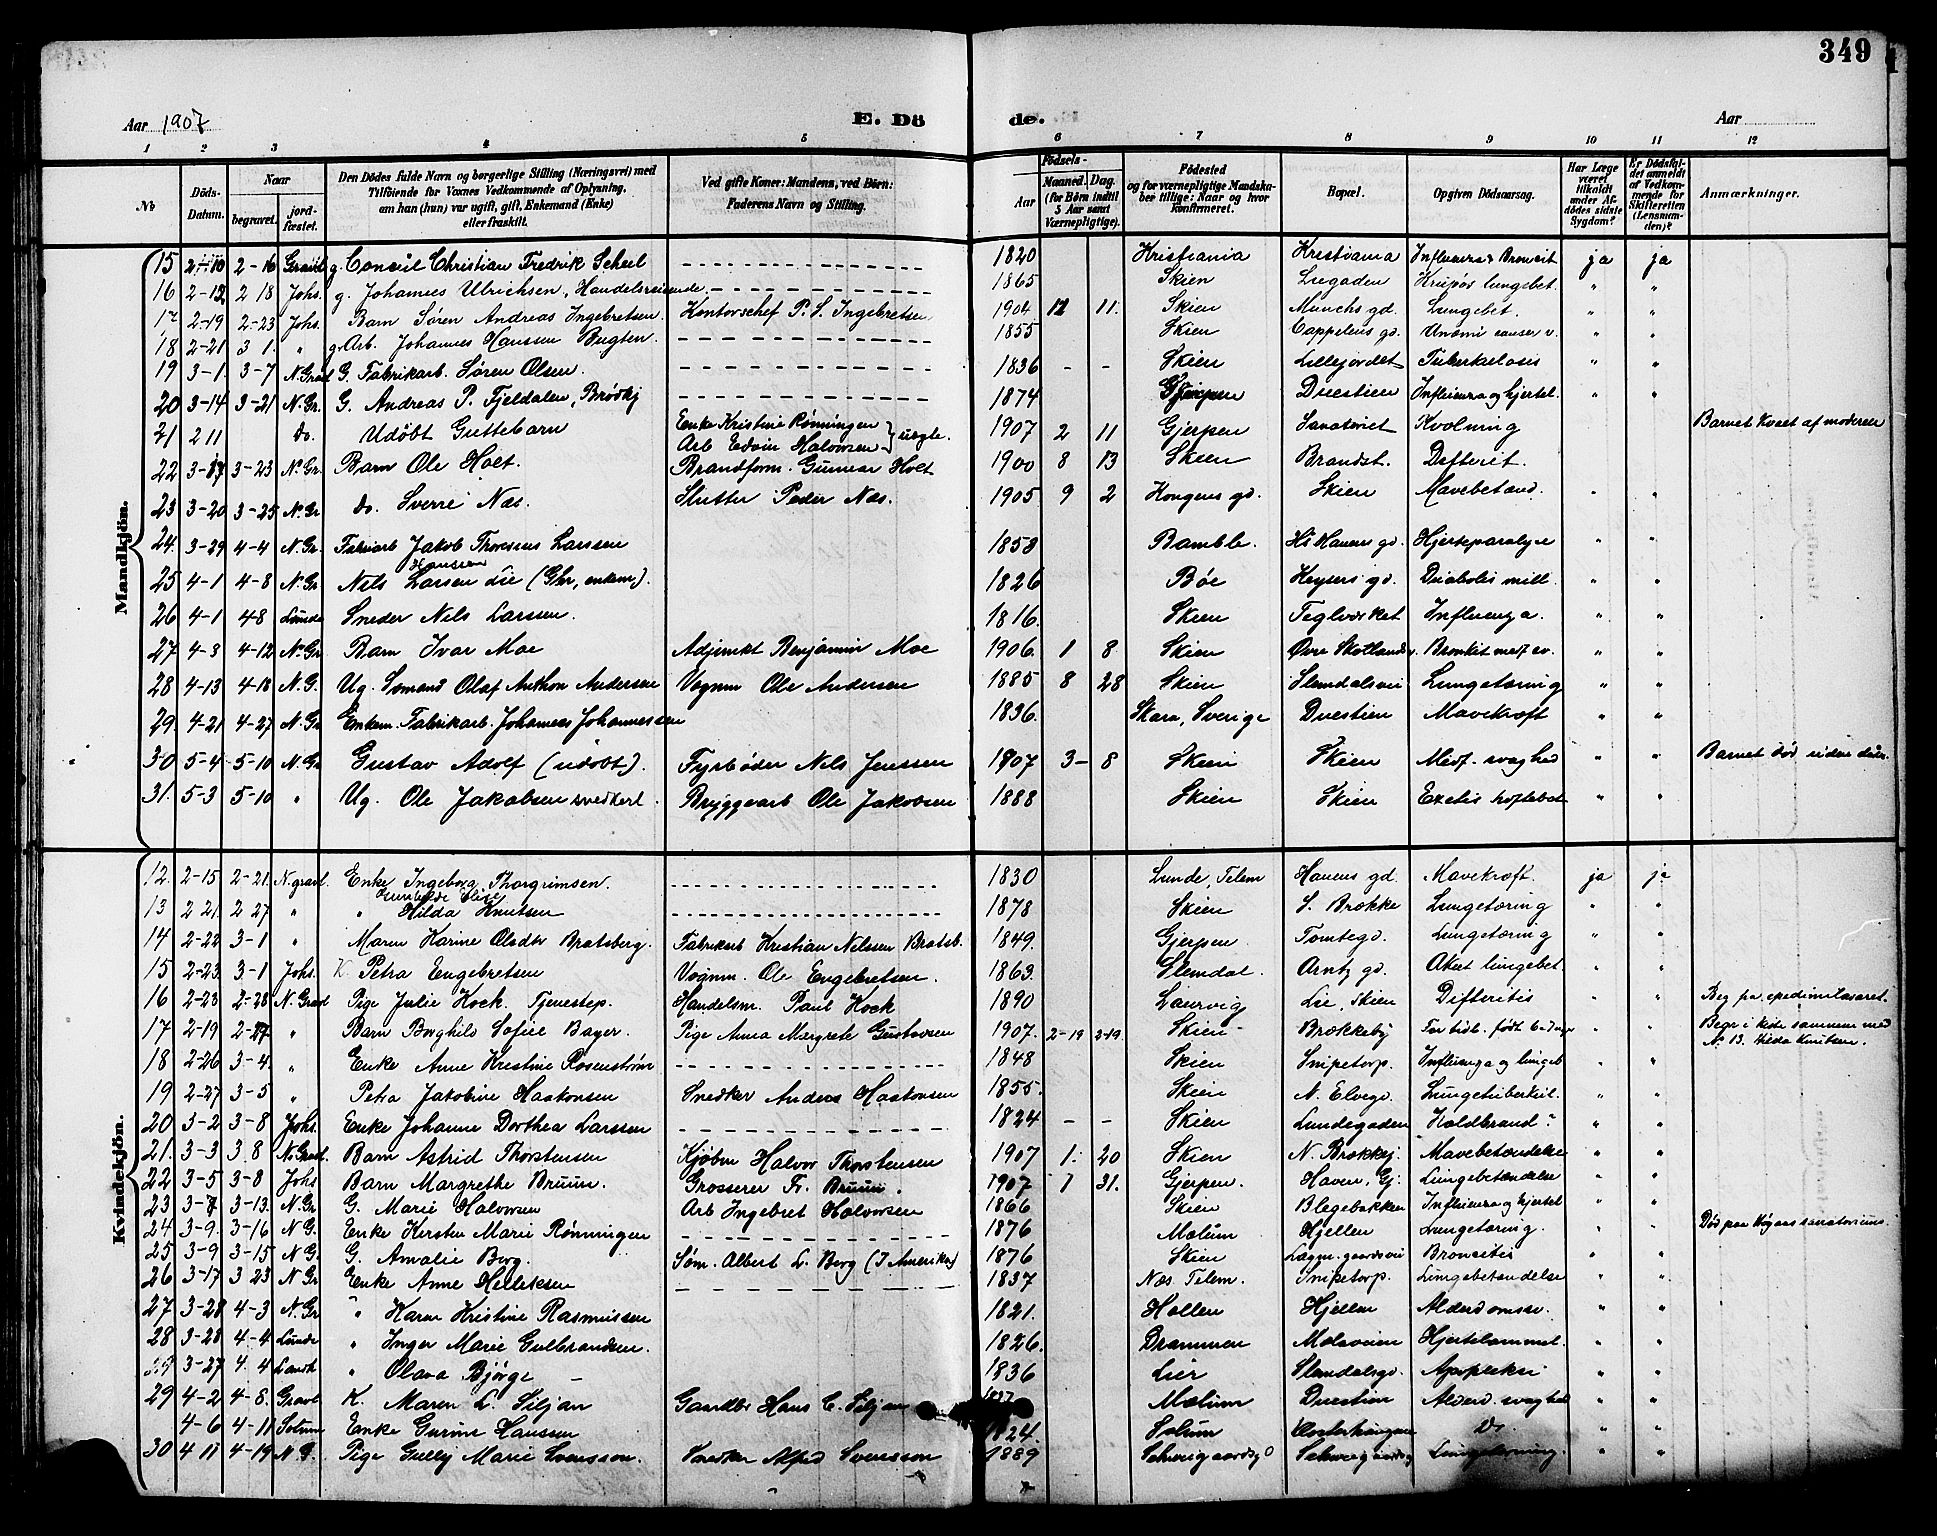 349
Aar 1907 E. Dö de. Aar
1 2 3 4 5 6 7 8 9 10 11 12
No
Döds-Datum.
Naar
begravet.
jord-fæstet.
Den Dödes fulde Navn og borgerlige Stilling (Næringsvei) med
Tilföiende for Voxnes Vedkommende af Oplysning,
om han (hun) var ugift, gift, Enkemand (Enke)
eller fraskilt.
Ved gifte Koner: Mandens, ved Börn:
Faderens Navn og Stilling.
Födsels-
Aar
Maaned. Dag.
(for Börn indtil
5 Aar samt
Værnepligtige).
Födested
og for værnepligtige Mandska-
ber tillige: Naar og hvor
konfirmeret.
Bopæl.
Opgiven Dödsaarsag.
Har Læge
været
tilkaldt
under Af-
dödes sidste
Sygdom?
Er Dödsfal-
det anmeldt
af Vedkom-
mende for
Skifteretten
(Lensman-
den)?
Anmærkninger.
Mandkjön.
15 2-10 2-16 Gravl g. Consul Christian Fredrik Scheel 1820 Kristiania Kristiania Influenza & Broncit ja ja
16 2-12 2 18 Johs. g. Johannes Ulrichsen, Handelsreisende 1865 Skien Liegaden Krupøs lungebet. " "
17 2-19 2-23 Johs. Barn Søren Andreas Ingebretsen. Kontorschef P. S. Ingebretsen 1904 12 11. Skien Munchs gd. Lungebet. " "
18 2-21 3 1. " g. Arb. Johannes Hanssen Bugten. 1855 Skien Cappelens gd. " "
19 3-1. 3-7 N. Grav G. Fabrikarb. Søren Olsen. 1836 - - Skien Lillejordet Tuberkelosis " "
20 3-14 3-21 N. Gr. G. Andreas P. Fjeldalen, Brødkj 1874 Gjerpen Duestien Influenza og hjertel. " "
21 2 11 do. Udøbt Guttebarn Enke Kristine Rønningen Arb Edvin Halvorsen } uegte. 1907 2 11 Gjerpen Sanatoriet Kvælning Barnet kvalt af moderen
22 3-17 3-23 N. Gr. Barn Ole Hoet. Brandform. Gunnar Hoet 1900 8 13 Skien Brandst. Difterit. " "
23 3-20 3-25 N. Gr do. Sverre Næs. Slutter Peder Næs. 1905 9 2 Kongens gd. Skien Mavebetænd. " "
24. 3-29 4-4 N. Gr. Fabrikarb Jakob Thoresens Larssen 1858 Bamble. Hjerteparalyse " "
25 4-1 4-8 N. Gr Nils Hansen Larsen Lie (Ghr, enkem). 1826 Bøe Keysers gd. Diabetes mill. " "
26 4-1 4-8 Lunde Sneder Nils Larssen. 1816. Skien Teglværket Influenza. " "
27 4-3 4-12 N. Gr. Barn Ivar Moe Adjunkt Benjamin Moe 1906. 1 8 Skien Øvre Skotlandsv. Bronkit medf sv. " "
28 4-13 4-18 N. G. Ug. Sømand Olaf Anthon Andersen Vognm Ole Andersen 1885 8 28 Skien Slemdalsvei Lungetæring " "
29. 4-21 4-27 N. Gr Enkem. Fabrikarb. Johannes Johannessen 1836. Skara, Sverige Duestien Mavekræft " "
30 5-4 5-10 N. Gr Gustav Adolf (udøbt). Fyrbøder Nils Jenssen 1907 3- 8 Skien Skien Medf. svaghed " " Barnet død uden daab.
31. 5-3 5-10 " Ug. Ole Jakobsen snedkerl. Bryggearb Ole Jakobsen 1888 Skien Skien hoftebet " "
Kvindekjön.
12. 2-15 2-21. N. gravl. Enke Ingeborg Thorgrimsen. 1830 Lunde, Telem Havens gd. Mavekræft. ja ja
13 2 21 2 27 " " Gunhilde Elise Hilda Knutsen 1878 Skien S. Brække Lungetæring " "
14 2-22 3-1 " Maren Karine Olsdtr Bratsberg. Fabrikarb Kristian Nilssen Bratsb. 1849. Gjerpen Tomtegd. Lungetæring " "
15 2-23 3-1 Johs. K. Petra Engebretsen Vognm. Ole Engebretsen. 1863. Slemdal. Arntz gd. Akut lungebet " "
16 2-23 2-28 N. Grav Pige Julie Kock. Tjenestep. Handelsm. Paul Kock 1890 Laurvig Lie, Skien Difteritis " " Beg fra epedimilasaret.
17 2-19 2-27 " Barn Borghild Sofie Bayer. Pige Anna Margrete Gustavsen 1907. 2-19 2-19. Skien - Brækkeby For tidl. født 6 dage " " Begr i kiste sammen med No 13. Hilda Knutsen.
18 2-26 3-4. " Enke Anne Kristine Rosenstrøm 1848 Skien Snipetorp. Influenza og lungeb " "
19 2-27 3-5 " Petra Jakobine Haakonsen Snedker Anders Haakonsen 1855. Skien N. Elvegd. Lungetuberkul. " "
20 3-2 3-8 Johs. Enke Johanne Dorthea Larssen 1824 - - Skien Lundegaden Koldbrand " "
21. 3-3 3 8 N. Gravl. Barn Astrid Thorstensen Kjøbm Halvor Thorstensen 1907 1. 20 Skien N. Brækkej. Mavebetændelse " "
22 3-5 3-8 Johs Barn Margrethe Bruun. Grosserer Fr. Bruun. 1907 1 31. Gjerpen. Haven, Gj. Lungebetændelse " "
23 3-7 3-13. N. Gr G. Marie Halvorsen Arb Ingebret Halvorsen 1866 Skien Blegebakken Influenza og hjertel " "
24 3-9. 3-16 N. G. Enke Kersten Marie Rønningen 1876 Mælum Hjellen Lungetæring. " - Død paa Høgaas sanatorium.
25 3-9 3-15 N. G. G. Amalie Berg. Søm. Albert L. Berg (I Amerika) 1876 Skien Lagm. gaardsvei Broncitis " "
26 3-17 3 23 N. Gr Enke Anne Helleksen 1837 Næs. Telem. Snipetorp. Lungebetændelse " "
27 3-28 4-3 N. Gr " Karen Kristine Rasmussen 1821. Hollen Hjellen Alderdomssv. " "
28 3-28 4-4 Lunde " Inger Marie Gulbrandsen. 1826. Drammen Hjertelammel. " "
29 3-27 4. 4 Landk " Olava Bjørge 1836 Lier Slemdalsgd. Apopleksi " "
29 4-2 4-8. Gravl K. Maren L. Siljan Gaardbr Hans C. Siljan 1837 Mælum Duestien Alderd. svaghed " "
4-6 4-11 Solum Enke Gurine Hanssen 1824. Solum Do. " "
30 4 11 4-19 N. G. Pige Gully Marie Svensson. Snedker Alfred Svensson 1889 Schweigaardsg Schweigaardsg Lungetæring. " "